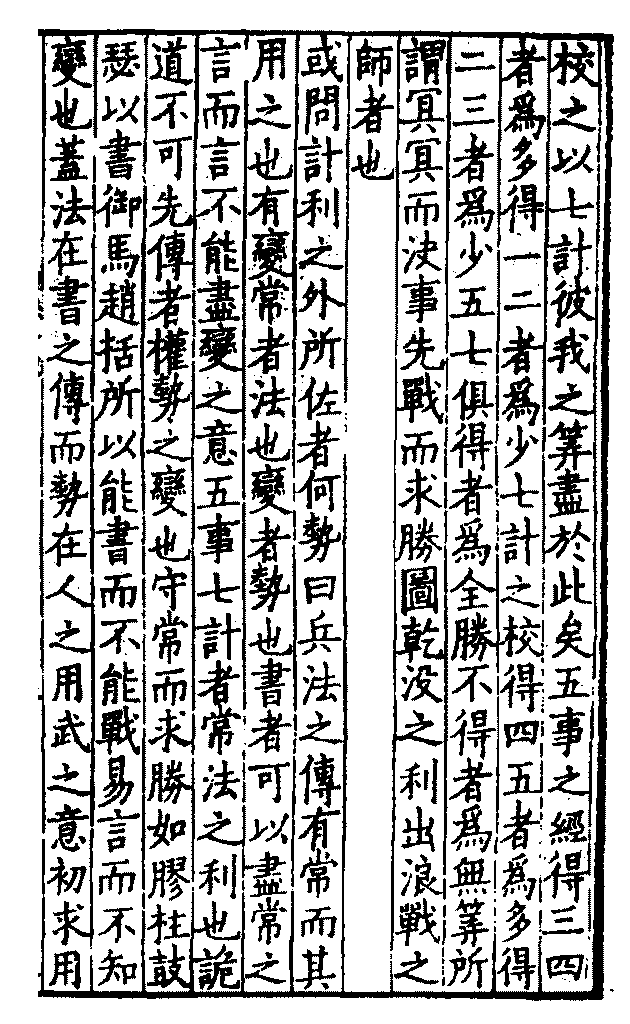 校之以七計彼我之筭盡於此矣五事之經得三四
者爲多得一二者爲少七計之校得四五者爲多得
二三者爲少五七俱得者爲全勝不得者爲無筭所
謂冥冥而決事先戰而求勝圖乾没之利出浪戰之
師者也
或問計利之外所佐者何勢曰兵法之傳有常而其
用之也有變常者法也變者勢也書者可以盡常之
言而言不能盡變之意五事七計者常法之利也詭
道不可先傳者權勢之變也守常而求勝如膠柱鼓
瑟以書御馬趙括所以能書而不能戰易言而不知
變也蓋法在書之傳而勢在人之用武之意初求用